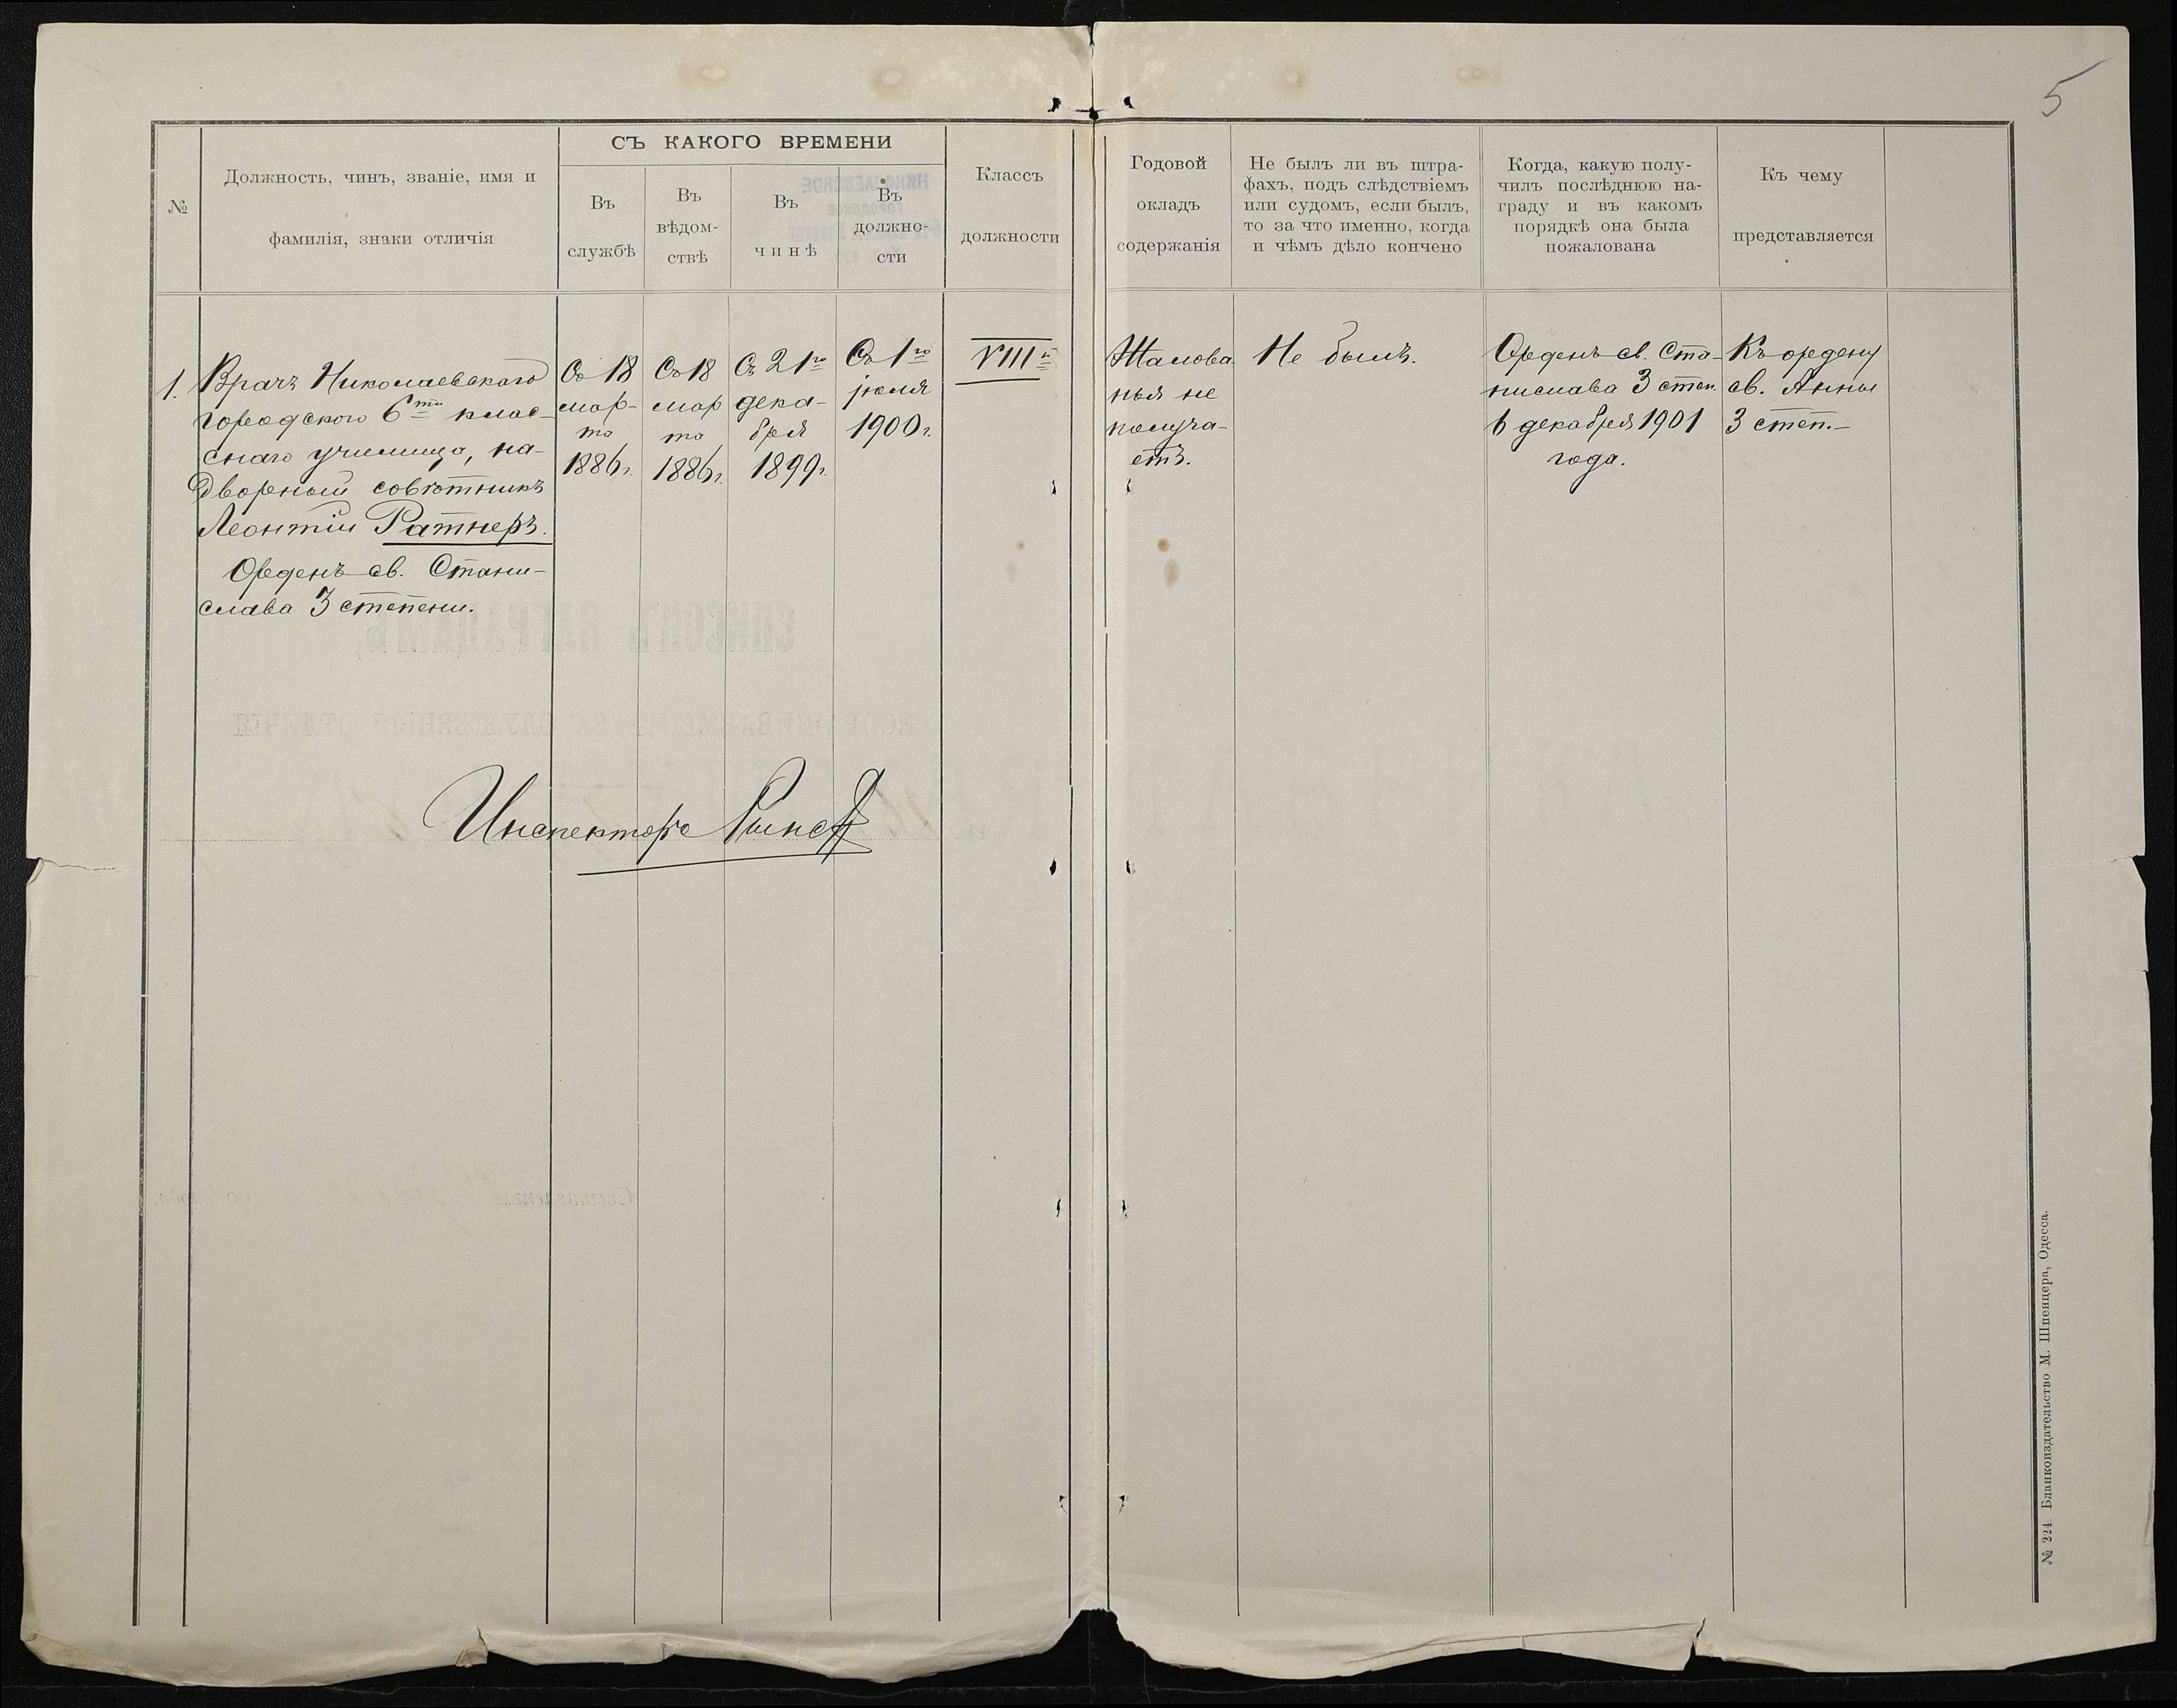 5
СЪ КАКОГО ВРЕМЕНИ
№
Должность, чинъ, званіе, имя и
фамилія, знаки отличія
Въ
службѣ
Въ
вѣдом-
ствѣ
Въ
чинѣ
Въ
должно-
сти
Классъ
должности
Годовой
окладъ
содержанія
Не былъ ли въ штра-
фахъ, подъ слѣдствіемъ
или судомъ, если былъ,
то за что именно, когда
и чѣмъ дѣло кончено
Когда, какую полу-
чилъ послѣднюю на-
граду и въ какомъ
порядкѣ она была
пожалована
Къ чему
представляется
1.
Врачъ Николаевскаго
городского 6ти клас-
снаго училища, на-
дворный совѣтникъ
Леонтій Ратнеръ.
Орденъ св. Стани-
слава 3 степени.
Съ 18
мар-
та
1886 г.
Съ 18
мар
та
1886 г.
Съ 21го
дека-
бря
1899 г.
Съ 1го
іюля
1900 г.
VIIIй
Жалова
нья не
получа-
етъ.
Не былъ.
Орденъ св. Ста-
нислава 3 степ.
6 декабря 1901
года.
Къ ордену
св. Анны
3 степ.-
Инспекторъ
СПИСОКЪ НАГРАДАМЪ,
ИСПРАШИВАЕМЫМЪ ЗА СЛУЖЕБНЫЯ ОТЛИЧІЯ
№ 224. Бланкоиздательство М. Шпенцера, Одесса.